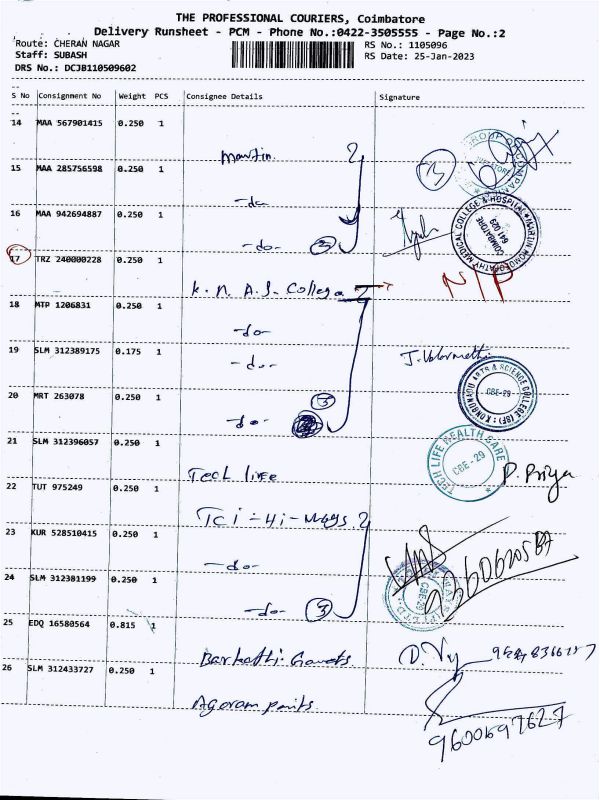 THE PROFESSIONAL COURIERS, Coimbatore
Delivery Runsheet - PCM - Phone No.:0422-3505555 - Page No.:2
Route: CHERAN NAGAR RS No.: 1105096
Staff: SUBASH RS Date: 25-Jan-2023
DRS No.: DCJB110509602
S No Consignment No Weight PCS Consignee Details Signature
14 MAA 567901415 0.250 1
Martin
15 MAA 285756598 0.250 1
-do-
16 MAA 942694887 0.250 1
-do- 3
MARTIN HOMOEOPATHY MEDICAL COLLEGE & HOSPITAL
COIMBATORE
641 029
17 TRZ 240000228 0.250 1
K. N. A. S. College
N/P
18 MTP 1206831 0.250 1
-do-
19 SLM 312389175 0.175 1
-do-
J. Valarmathi
20 MRT 263078 0.250 1
-do- 3
KONGUNADU ARTS & SCIENCE COLLEGE
CBE-29
21 SLM 312396057 0.250 1
Tech life
TECH LIFE HEALTH CARE
CBE-29
P. Priya
22 TUT 975249 0.250 1
TCi-Hi-Ways
23 KUR 528510415 0.250 1
-do-
24 SLM 312381199 0.250 1
-do- 3
25 EDQ 16580564 0.815 1
26 SLM 312433727 0.250 1
Agaram paints
9600697627